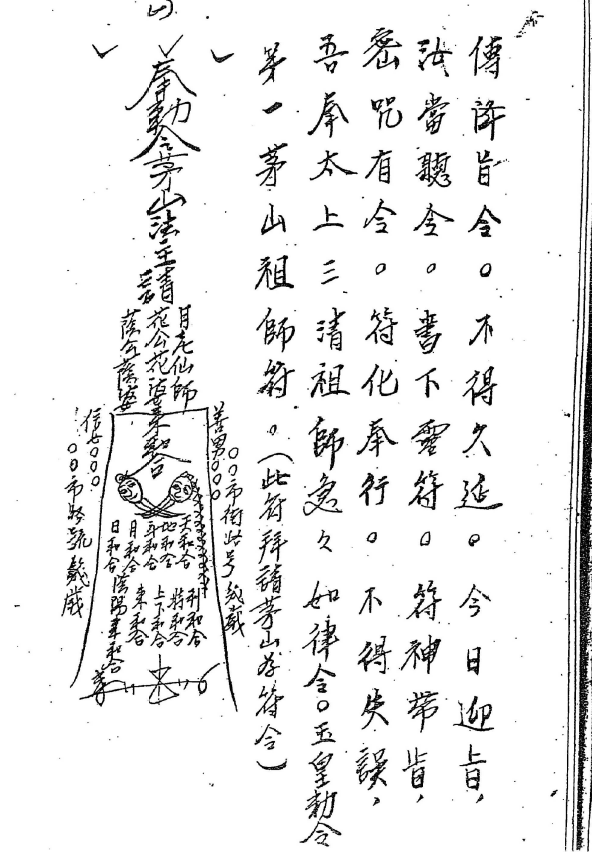 傳降旨令。不得久延。今日迎旨，
汝當聽令。書下靈符。符神帶旨，
密咒有令。符化奉行。不得失誤，
吾奉太上三清祖師急々如律令。玉皇勅令
茅一茅山祖師符。（此符拜請茅山各符令）
奉勅令茅山法主請
月老仙師
花公花婆來和合
蔭公蔭婆
善男○○○
○○市街路号 歲
天和合
地和合
年和合
月和合
日和合
利和合
時和合
上下和合
東和合
陰陽來和合
信女○○○
○○市 路號 歲